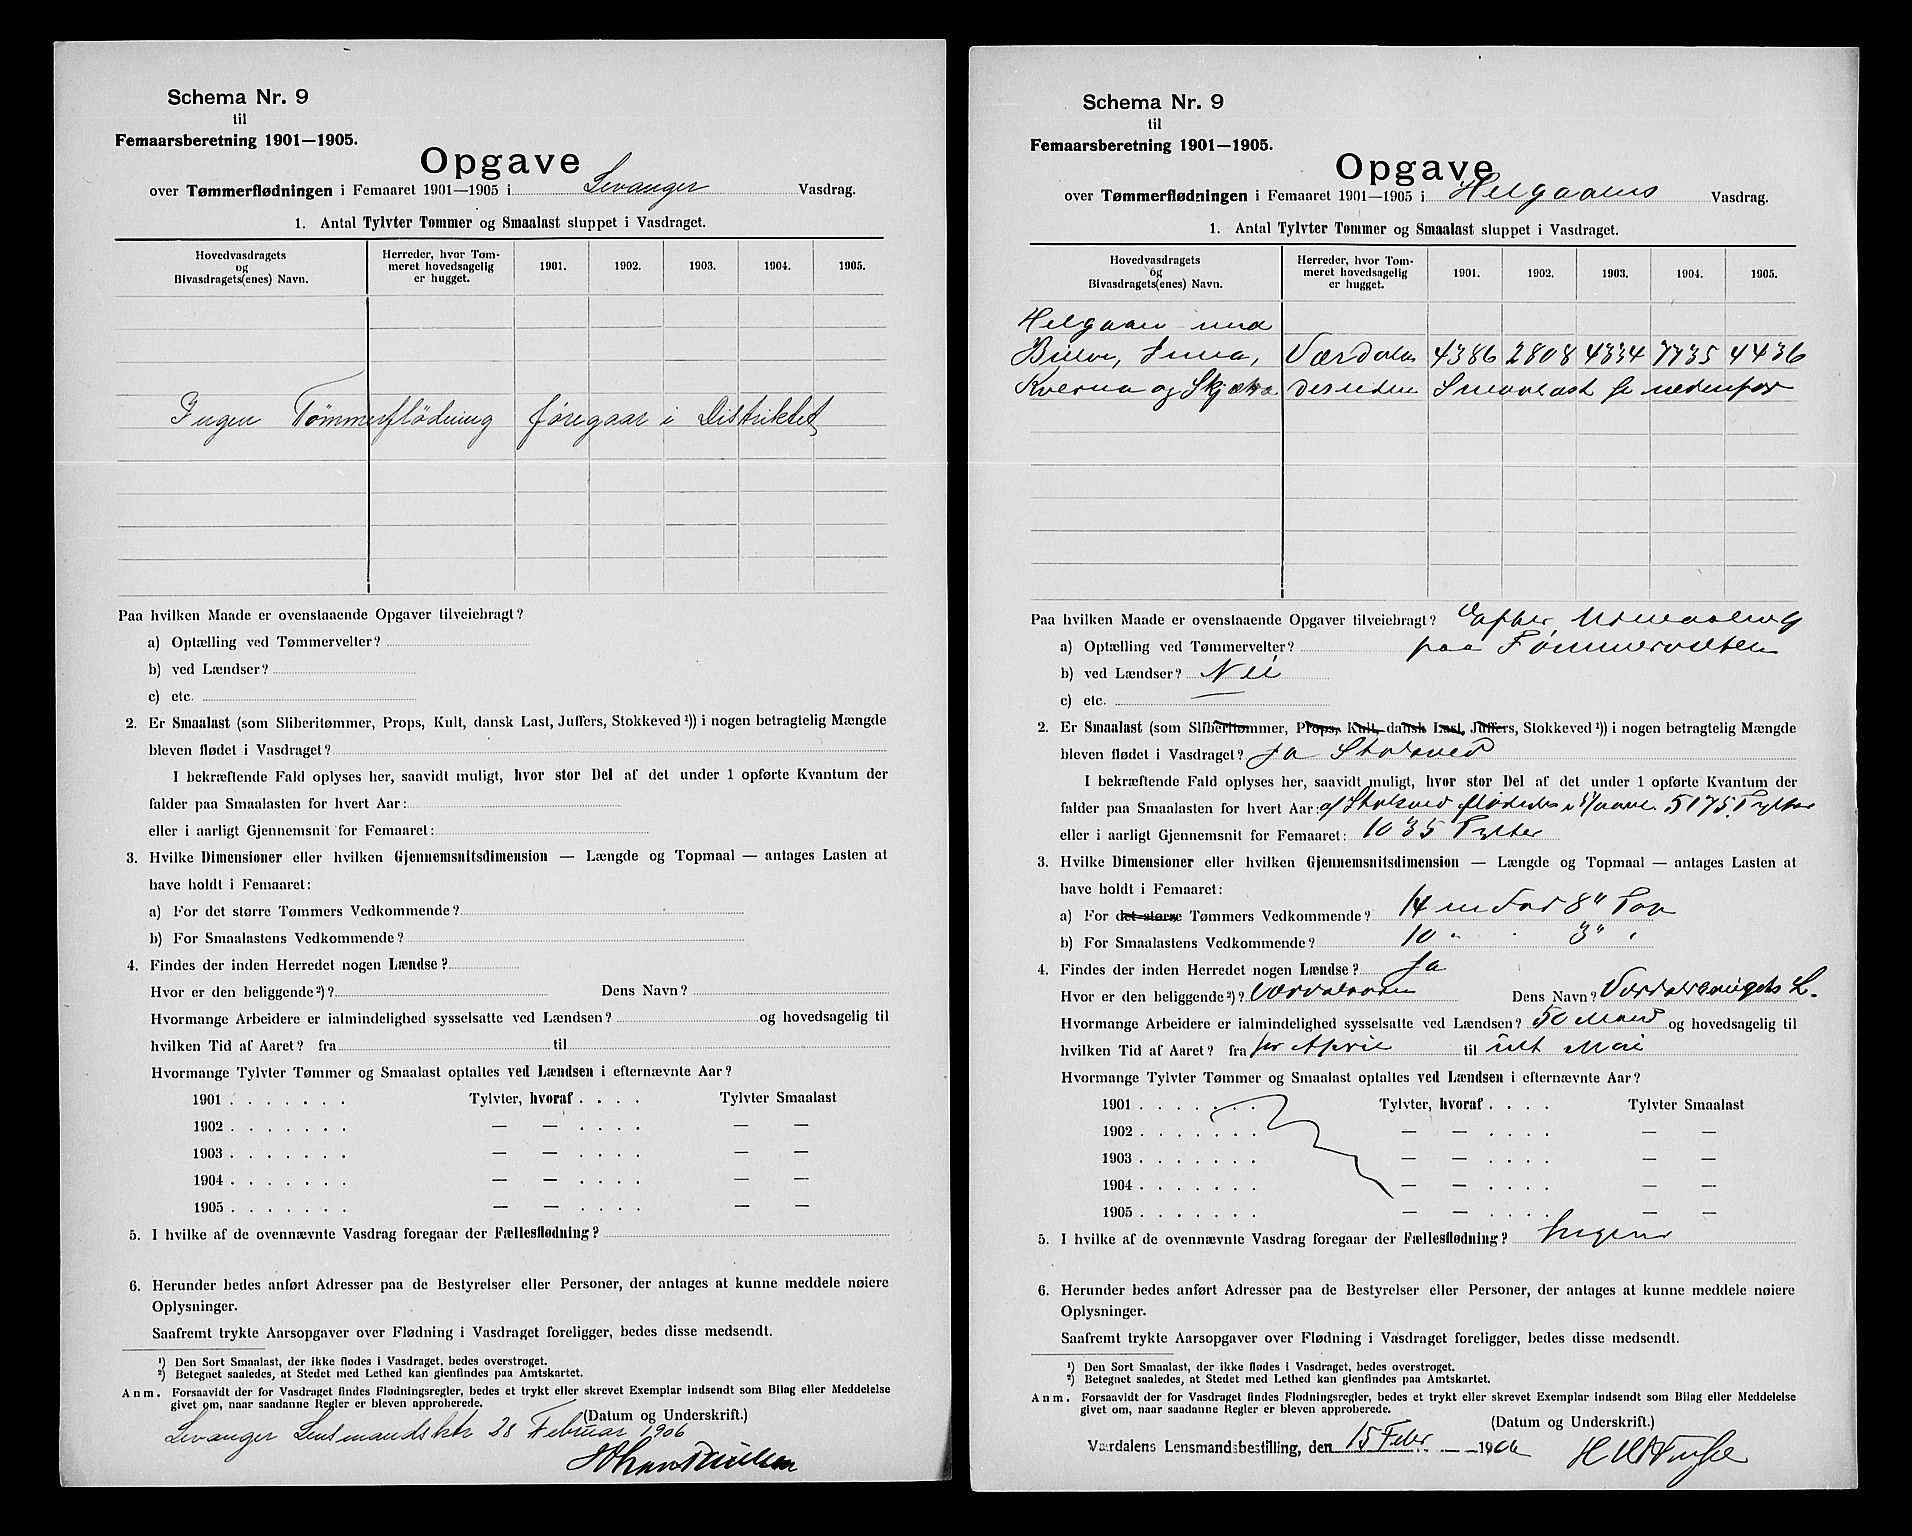 Schema Nr. 9
til
Femaarsberetning 1901—1905.
Opgave
over Tømmerflødningen i Femaaret 1901—1905 i Levanger Vasdrag.
1. Antal Tylvter Tømmer og Smaalast sluppet i Vasdraget.
Hovedvasdragets og Bivasdragets(enes) Navn. Herreder, hvor Tømmeret hovedsagelig er hugget. 1901. 1902. 1903. 1904. 1905.
Ingen Tømmerflödning foregaar i Distriktet
Paa hvilken Maade er ovenstaaende Opgaver tilveiebragt?
a) Optælling ved Tømmervelter?
b) ved Lændser?
c) etc.
2. Er Smaalast (som Sliberitømmer, Props, Kult, dansk Last, Juffers, Stokkeved ¹)) i nogen betragtelig Mængde
bleven flødet i Vasdraget?
I bekræftende Fald oplyses her, saavidt muligt, hvor stor Del af det under 1 opførte Kvantum der
falder paa Smaalasten for hvert Aar:
eller i aarligt Gjennemsnit for Femaaret:
3. Hvilke Dimensioner eller hvilken Gjennemsnitsdimension — Længde og Topmaal — antages Lasten at
have holdt i Femaaret:
a) For det større Tømmers Vedkommende?
b) For Smaalastens Vedkommende?
4. Findes der inden Herredet nogen Lændse?
Hvor er den beliggende ²)? Dens Navn?
Hvormange Arbeidere er ialmindelighed sysselsatte ved Lændsen? og hovedsagelig til
hvilken Tid af Aaret? fra til
Hvormange Tylvter Tømmer og Smaalast optaltes ved Lændsen i efternævnte Aar?
1901 . . . . . . . Tylvter, hvoraf . . . . Tylvter Smaalast
1902 . . . . . . . — — . . . . — —
1903 . . . . . . . — — . . . . — —
1904 . . . . . . . — — . . . . — —
1905 . . . . . . . — — . . . . — —
5. I hvilke af de ovennævnte Vasdrag foregaar der Fællesflødning?
6. Herunder bedes anført Adresser paa de Bestyrelser eller Personer, der antages at kunne meddele nøiere
Oplysninger.
Saafremt trykte Aarsopgaver over Flødning i Vasdraget foreligger, bedes disse medsendt.
¹) Den Sort Smaalast, der ikke flødes i Vasdraget, bedes overstrøget.
²) Betegnet saaledes, at Stedet med Lethed kan gienfindes paa Amtskartet.
Anm. Forsaavidt der for Vasdraget findes Flødningsregler, bedes et trykt eller skrevet Exemplar indsendt som Bilag eller Meddelelse
givet om, naar saadanne Regler er bleven approberede.
(Datum og Underskrift.)
Levanger Lensmandsktr 28 Februar 1906
Schema Nr. 9
til
Femaarsberetning 1901—1905.
Opgave
over Tømmerflødningen i Femaaret 1901—1905 i Helgaaens Vasdrag.
1. Antal Tylvter Tømmer og Smaalast sluppet i Vasdraget.
Hovedvasdragets og Bivasdragets(enes) Navn. Herreder, hvor Tømmeret hovedsagelig er hugget. 1901. 1902. 1903. 1904. 1905.
Helgaaen med
Bielve, Inna, Værdalen 4386 2808 4334 7735 4436
Kverna og Skjækra desuden Smaalast se nedenfor
Paa hvilken Maade er ovenstaaende Opgaver tilveiebragt? Efter Udmaaling
a) Optælling ved Tømmervelter? paa Tømmervelten
b) ved Lændser? Nei
c) etc. —
2. Er Smaalast (som Sliberitømmer, Props, Kult, dansk Last, Juffers, Stokkeved ¹)) i nogen betragtelig Mængde
bleven flødet i Vasdraget? Ja Stokved
I bekræftende Fald oplyses her, saavidt muligt, hvor stor Del af det under 1 opførte Kvantum der
falder paa Smaalasten for hvert Aar: af Stokved flødedes i 5/aaret 5175 Tylter
eller i aarligt Gjennemsnit for Femaaret: 1035 Tylter
3. Hvilke Dimensioner eller hvilken Gjennemsnitsdimension — Længde og Topmaal — antages Lasten at
have holdt i Femaaret:
a) For det større Tømmers Vedkommende? 14 Fod 8" Top
b) For Smaalastens Vedkommende? 10 " 3" "
4. Findes der inden Herredet nogen Lændse? Ja
Hvor er den beliggende ²)? Værdalsøren Dens Navn? Værdalsbrugets L.
Hvormange Arbeidere er ialmindelighed sysselsatte ved Lændsen? 50 Mand og hovedsagelig til
hvilken Tid af Aaret? fra pr April til ult Mai
Hvormange Tylvter Tømmer og Smaalast optaltes ved Lændsen i efternævnte Aar?
1901 . . . . . . . Tylvter, hvoraf . . . . Tylvter Smaalast
1902 . . . . . . . — — . . . . — —
1903 . . . . . . . — — . . . . — —
1904 . . . . . . . — — . . . . — —
1905 . . . . . . . — — . . . . — —
5. I hvilke af de ovennævnte Vasdrag foregaar der Fællesflødning? Ingen
6. Herunder bedes anført Adresser paa de Bestyrelser eller Personer, der antages at kunne meddele nøiere
Oplysninger.
Saafremt trykte Aarsopgaver over Flødning i Vasdraget foreligger, bedes disse medsendt.
¹) Den Sort Smaalast, der ikke flødes i Vasdraget, bedes overstrøget.
²) Betegnet saaledes, at Stedet med Lethed kan gienfindes paa Amtskartet.
Anm. Forsaavidt der for Vasdraget findes Flødningsregler, bedes et trykt eller skrevet Exemplar indsendt som Bilag eller Meddelelse
givet om, naar saadanne Regler er bleven approberede.
(Datum og Underskrift.)
Værdalens Lensmandsbestilling, den 15 Febr. 1906